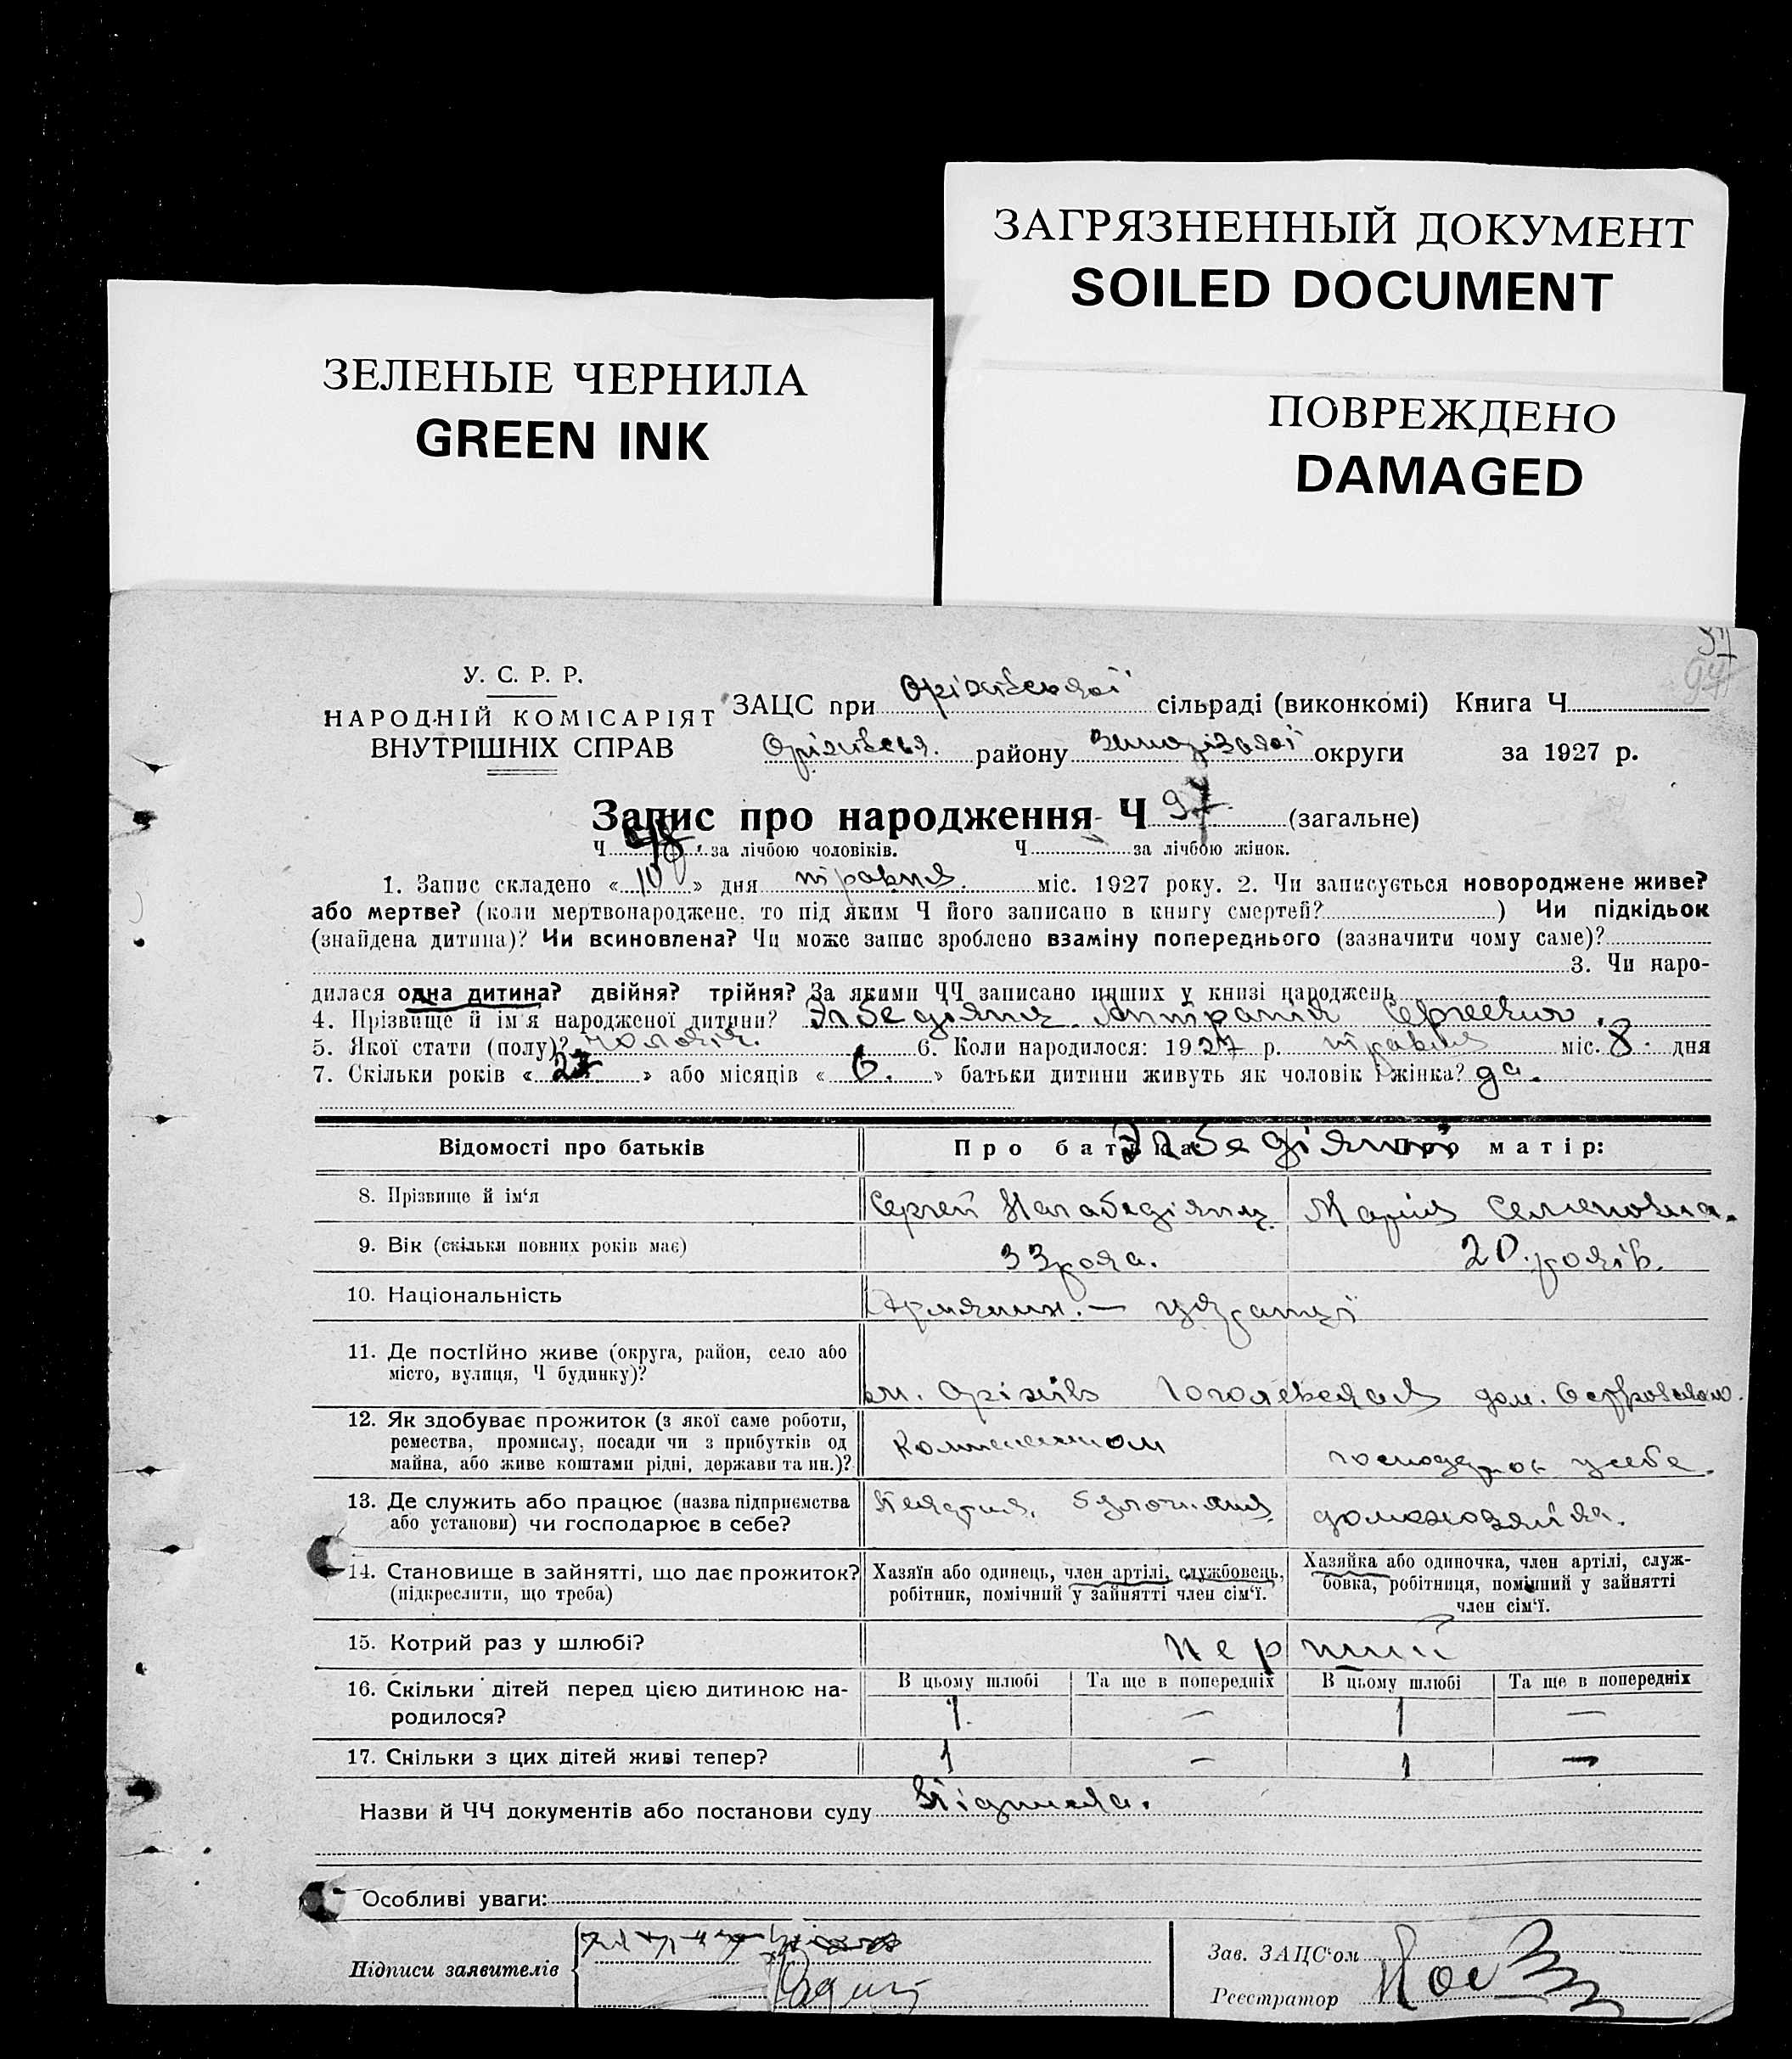 ЗАГРЯЗНЕННЫЙ ДОКУМЕНТ
SOILED DOCUMENT
ЗЕЛЕНЫЕ ЧЕРНИЛА
GREEN INK
ПОВРЕЖДЕНО
DAMAGED
У. С. Р. Р.
НАРОДНІЙ КОМІСАРІЯТ
ВНУТРІШНІХ СПРАВ
ЗАЦС при Оріхівській сільраді (виконкомі) Книга Ч
району округи за 1927 р.
Запис про народження Ч 97 (загальне)
Ч за лічбою чоловіків. Ч за лічбою жінок.
1. Запис складено «10» дня травня міс. 1927 року. 2. Чи записується новороджене живе?
або мертве? (коли мертвонароджене, то під яким Ч його записано в книгу смертей?) Чи підкідьок
(знайдена дитина)? Чи всиновлена? Чи може запис зроблено взаміну попереднього (зазначити чому саме)?
3. Чи наро-
дилася одна дитина? двійня? трійня? За якими ЧЧ записано инших у книзі народжень
4. Прізвище й ім'я народженої дитини?
5. Якої стати (полу)? 6. Коли народилося: 1927 р. травня міс. 8 дня
7. Скільки років « » або місяців « 6. » батьки дитини живуть як чоловік і жінка? да.
Відомості про батьків Про батька Про матір:
8. Прізвище й ім‘я Сергей Марія Семеновна.
9. Вік (скільки повних років має) 33 рока. 20 років.
10. Національність Армянин. — україн
11. Де постійно живе (округа, район, село або
місто, вулиця, Ч будинку)? м. Оріхів Гоголевская дом.
12. Як здобуває прожиток (з якої саме роботи,
ремества, промислу, посади чи з прибутків од
майна, або живе коштами рідні, держави та ин.)? у себе.
13. Де служить або працює (назва підприємства
або установи) чи господарює в себе? Пекарня, домохозяйка.
14. Становище в зайнятті, що дає прожиток?
(підкреслити, що треба)
Хазяїн або одинець, член артілі, службовець,
робітник, помічний у зайнятті член сім‘ї.
Хазяйка або одиночка, член артілі, служ-
бовка, робітниця, помічний у зайнятті
член сім‘ї.
15. Котрий раз у шлюбі? перший
16. Скільки дітей перед цією дитиною на-
родилося?
В цьому шлюбі Та ще в попередніх В цьому шлюбі Та ще в попередніх
1 — 1 —
17. Скільки з цих дітей живі тепер? 1 — 1 —
Назви й ЧЧ документів або постанови суду
Особливі уваги:
Підписи заявителів
Зав. ЗАЦС‘ом
Реєстратор